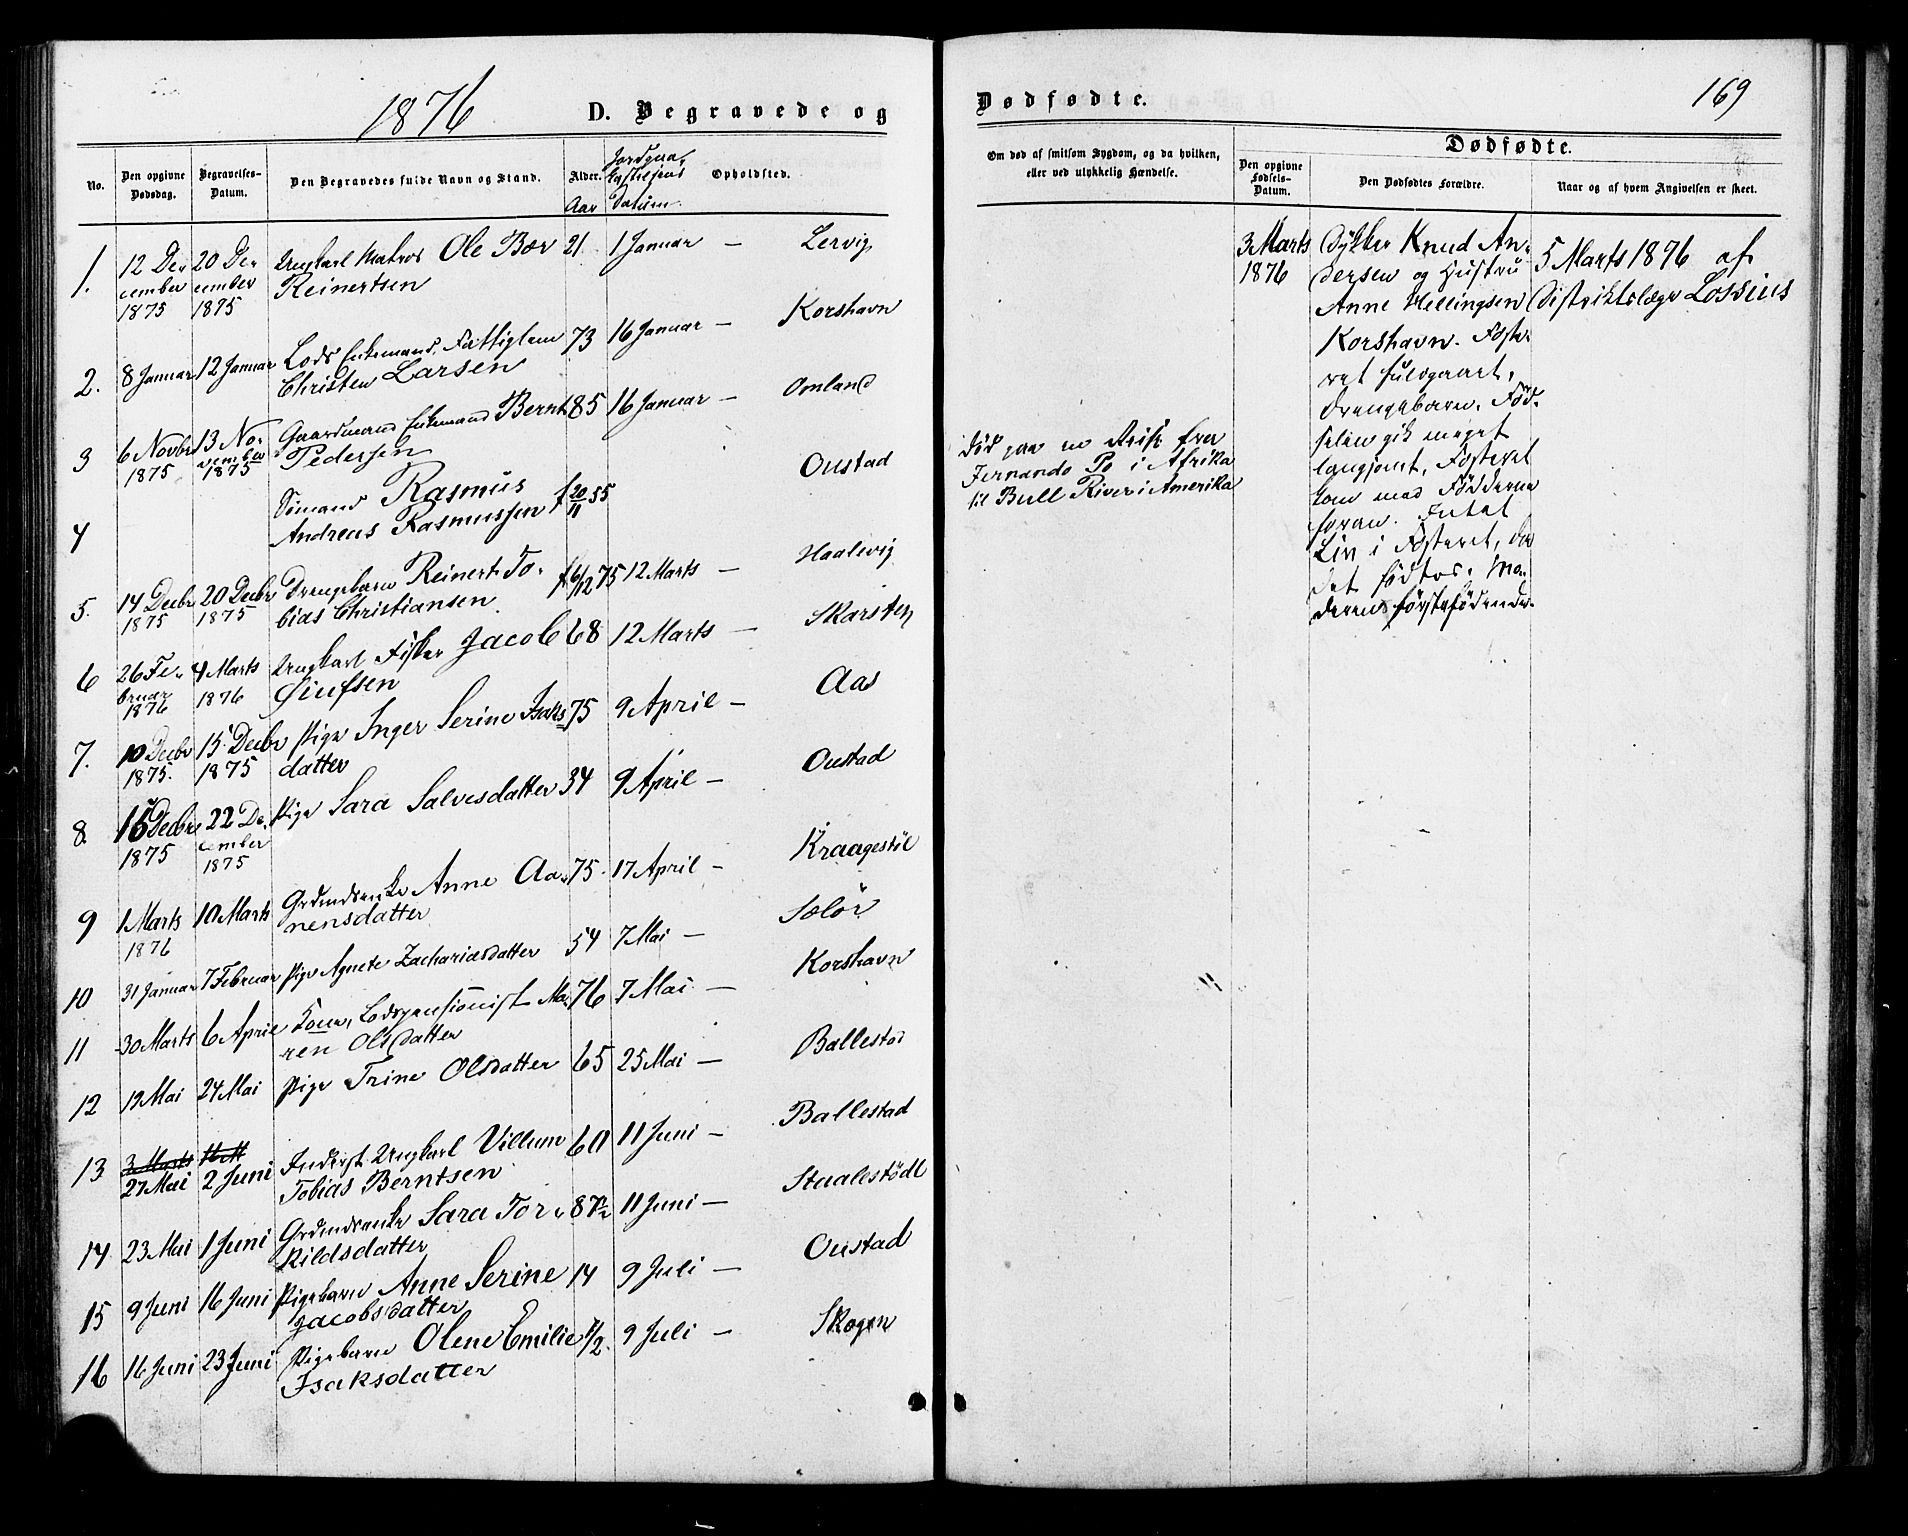 1876
D. Begravede og
No.
Den opgivne Dødsdag.
Begravelses-Datum.
Den Begravedes fulde Navn og Stand.
Alder.
Aar
Jordpaa-
kastelsens
Datum.
Opholdsted.
1. 12 De- 20 De- Ungkarl Matros Ole Bær 21. 1 Januar — Lervig
cember cember Reinertsen
1875 1875
2. 8 Januar 12 Januar Lods Enkemand, Fattiglem 73 16 Januar — Korshavn
Christen Larsen
3 6 Novbr 13 No- Gaardmand Enkemand Bernt 85 16 Januar — Omland
1875 vember Pedersen
1875
4 Sömand Rasmus f 20/11 55 Oustad
Andreas Rasmussen
5. 14 Decbr 20 Decbr Drengebarn Reinert To- f 6/12 75 12 Marts — Haalevig
1875 1875 bias Christiansen
6 26 Fe- 4 Marts Ungkarl Fisker Jacob 68 12 Marts — Skarsten
bruar 1876
1876
7. 10 Decbr 15 Decbr Pige Inger Serine Isaks 75 9 April — Aas
1875. 1875 datter
8. Decbr 22 De- Pige Sara Salvesdatter 34 9 April — Oustad
1875 cember
1875
9 1 Marts 10 Marts Anne Aa- 75. 17 April — Kraagestöl
1876 nensdatter
10 31 Januar 7 Februar Pige Agnete Zachariasdatter 54 7 Mai — Selör
11 30 Marts 6 April Kone, Lodspensionist Ma- 76 7 Mai — Korshavn
ren Olsdatter
12 19 Mai 24 Mai Pige Trine Olsdatter 65 25 Mai — Ballestad
13 27 Mai 2 Juni Inderst Ungkarl Villum 60 11 Juni — Ballestad
Tobias Berntsen
14 23 Mai 1 Juni Sara Tor- 87½ 11 Juni — Staalestödl
kildsdatter
15 9 Juni 16 Juni Pigebarn Anne Serine 14 9 Juli — Oustad
Jacobsdatter
16 16 Juni 23 Juni Pigebarn Olene Emilie ½. 9 Juli — Skogen
Isaksdatter
Dødfødte.
169
Om død af smitsom Sygdom, og da hvilken,
eller ved ulykkelig Hændelse.
Dødfødte.
Den opgivne Fødsels-Datum.
Den Dødfødtes Forældre.
Naar og af hvem Angivelsen er skeet.
död paa en Reise fra
Fernando Po i Afrika
til Bull River i Amerika
3 Marts
1876
Dykker Knud An-
dersen og Hustru
Anne Hellingsen
Korshavn. Foste-
ret fuldbaaret,
Drengebarn. Föd-
selen gik meget
langsomt, Fosteret
kom med Födderne
foran. Intet
Liv i Fosteret, da
det födtes. Mo-
deren förstefödende.
5 Marts 1876 af
Distriktslæge Lossius